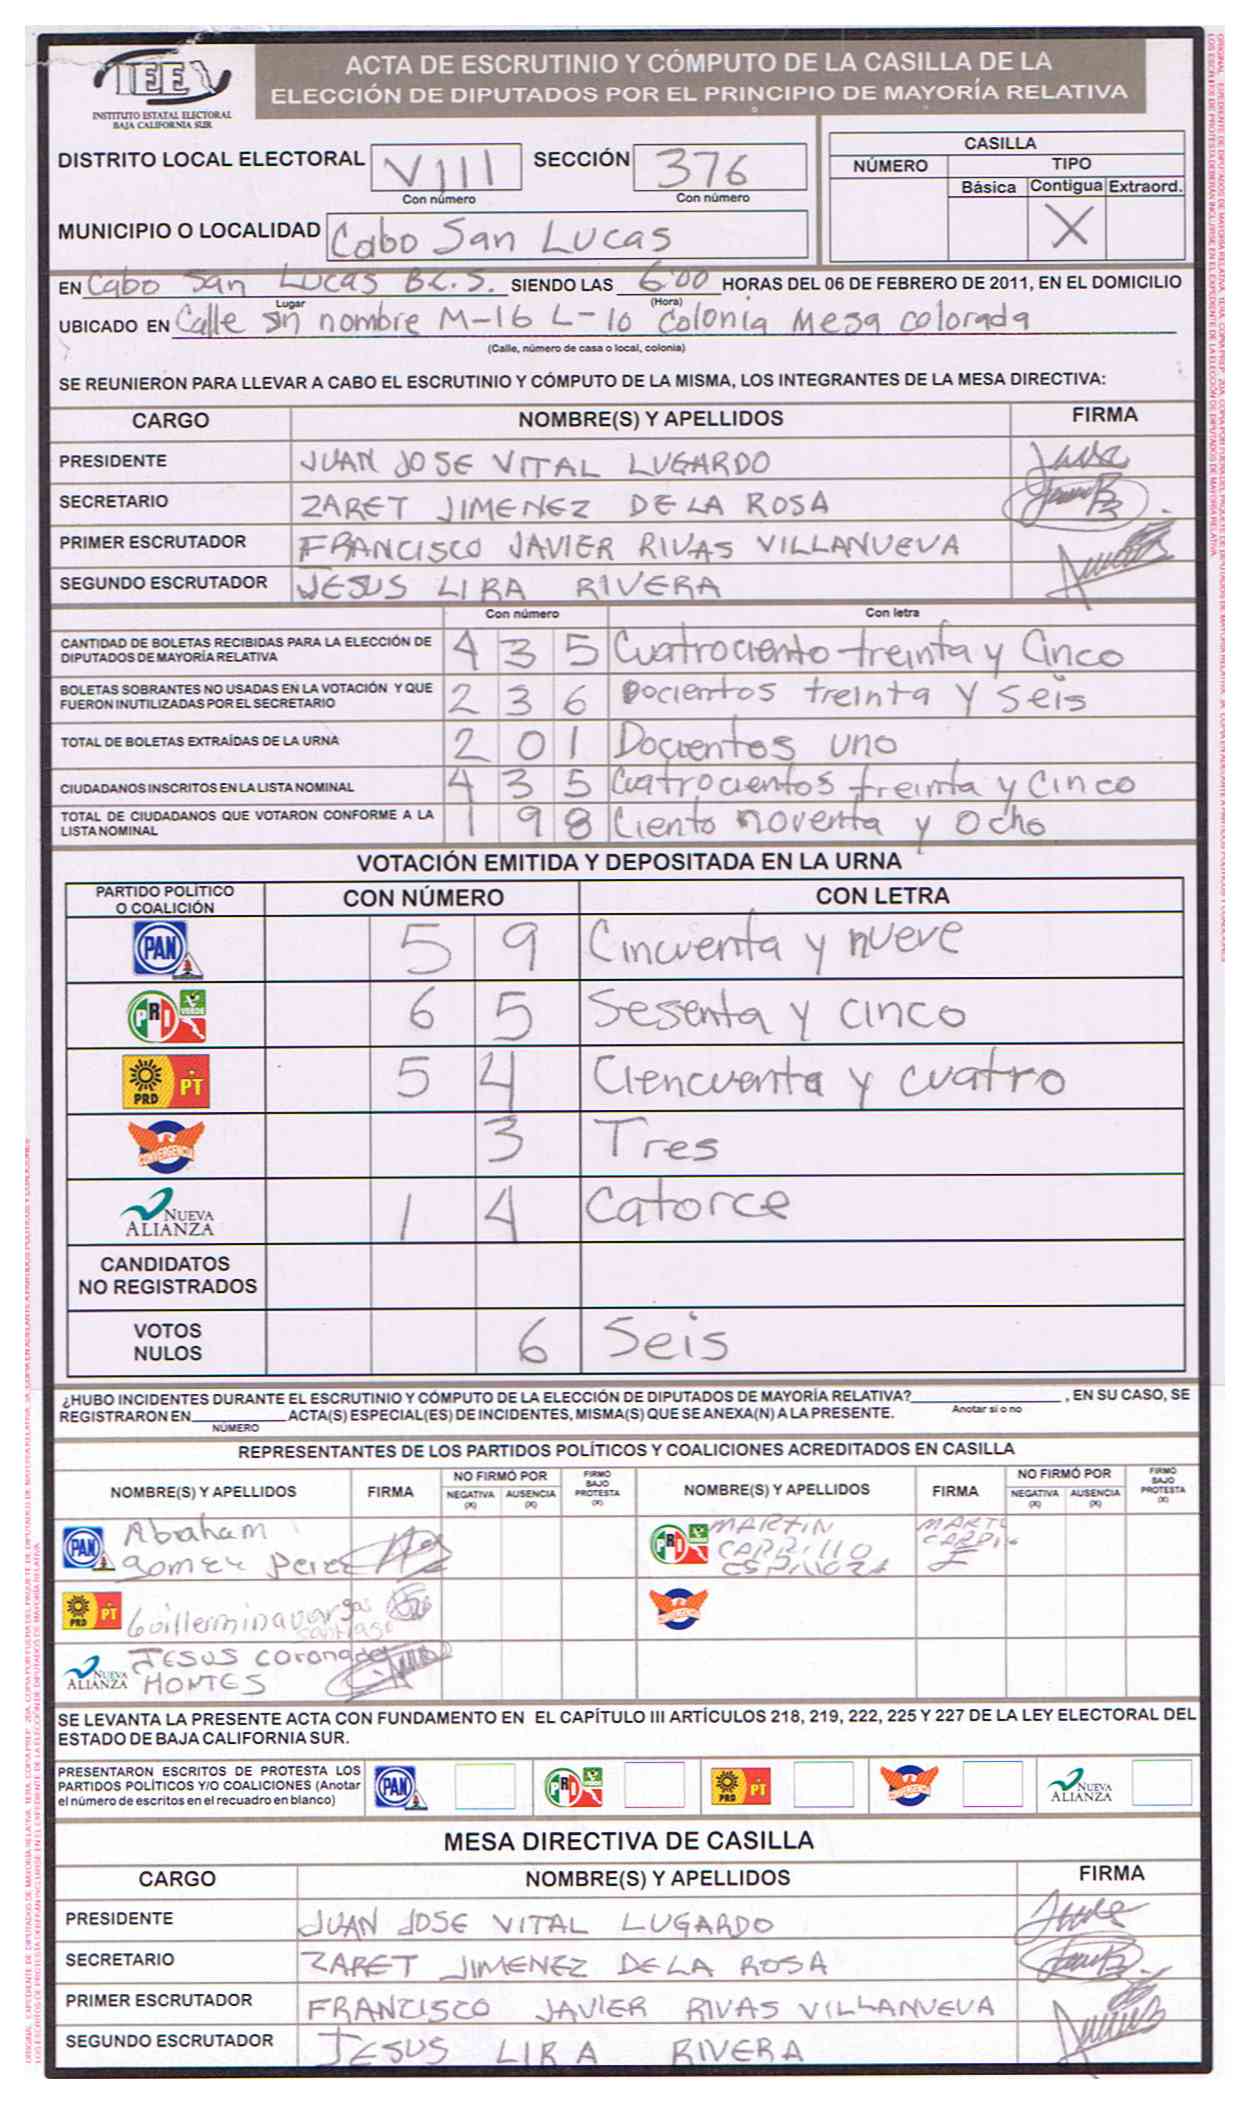 IEE
INSTITUTO ESTATAL ELECTORAL
BAJA CALIFORNIA SUR
ACTA DE ESCRUTINIO Y CÓMPUTO DE LA CASILLA DE LA
ELECCIÓN DE DIPUTADOS POR EL PRINCIPIO DE MAYORÍA RELATIVA
DISTRITO LOCAL ELECTORAL VIII SECCIÓN 376
Con número Con número
MUNICIPIO O LOCALIDAD Cabo San Lucas
CASILLA
NÚMERO TIPO
Básica Contigua Extraord.
X
EN Cabo San Lucas B.C.S. SIENDO LAS 6:00 HORAS DEL 06 DE FEBRERO DE 2011, EN EL DOMICILIO
Lugar (Hora)
UBICADO EN Calle sn nombre M-16 L-10 Colonia Mesa colorada
(Calle, número de casa o local, colonia)
SE REUNIERON PARA LLEVAR A CABO EL ESCRUTINIO Y CÓMPUTO DE LA MISMA, LOS INTEGRANTES DE LA MESA DIRECTIVA:
CARGO NOMBRE(S) Y APELLIDOS FIRMA
PRESIDENTE JUAN JOSE VITAL LUGARDO
SECRETARIO ZARET JIMENEZ DE LA ROSA
PRIMER ESCRUTADOR FRANCISCO JAVIER RIVAS VILLANUEVA
SEGUNDO ESCRUTADOR JESUS LIRA RIVERA
Con número Con letra
CANTIDAD DE BOLETAS RECIBIDAS PARA LA ELECCIÓN DE
DIPUTADOS DE MAYORÍA RELATIVA 4 3 5 Cuatrociento treinta y Cinco
BOLETAS SOBRANTES NO USADAS EN LA VOTACIÓN Y QUE
FUERON INUTILIZADAS POR EL SECRETARIO 2 3 6 Docientos treinta y seis
TOTAL DE BOLETAS EXTRAÍDAS DE LA URNA 2 0 1 Docientos uno
CIUDADANOS INSCRITOS EN LA LISTA NOMINAL 4 3 5 Cuatrocientos treinta y Cinco
TOTAL DE CIUDADANOS QUE VOTARON CONFORME A LA
LISTA NOMINAL 1 9 8 Ciento noventa y Ocho
VOTACIÓN EMITIDA Y DEPOSITADA EN LA URNA
PARTIDO POLÍTICO
O COALICIÓN CON NÚMERO CON LETRA
PAN 5 9 Cincuenta y nueve
PRI VERDE 6 5 Sesenta y cinco
PRD PT 5 4 Ciencuenta y cuatro
CONVERGENCIA 3 Tres
NUEVA
ALIANZA 1 4 Catorce
CANDIDATOS
NO REGISTRADOS
VOTOS
NULOS 6 Seis
¿HUBO INCIDENTES DURANTE EL ESCRUTINIO Y CÓMPUTO DE LA ELECCIÓN DE DIPUTADOS DE MAYORÍA RELATIVA? , EN SU CASO, SE
Anotar si o no
REGISTRARON EN ACTA(S) ESPECIAL(ES) DE INCIDENTES, MISMA(S) QUE SE ANEXA(N) A LA PRESENTE.
NÚMERO
REPRESENTANTES DE LOS PARTIDOS POLÍTICOS Y COALICIONES ACREDITADOS EN CASILLA
NOMBRE(S) Y APELLIDOS FIRMA NO FIRMÓ POR NEGATIVA (X) AUSENCIA (X) FIRMÓ BAJO PROTESTA (X) NOMBRE(S) Y APELLIDOS FIRMA NO FIRMÓ POR NEGATIVA (X) AUSENCIA (X) FIRMÓ BAJO PROTESTA (X)
PAN Abraham
Gomez Perez
PRI VERDE MARTIN
CARRILLO
ESPINOZA
PRD PT Guillermina vargas
santiago
CONVERGENCIA
NUEVA
ALIANZA JESUS Coronado
MONTES
SE LEVANTA LA PRESENTE ACTA CON FUNDAMENTO EN EL CAPÍTULO III ARTÍCULOS 218, 219, 222, 225 Y 227 DE LA LEY ELECTORAL DEL
ESTADO DE BAJA CALIFORNIA SUR.
PRESENTARON ESCRITOS DE PROTESTA LOS
PARTIDOS POLÍTICOS Y/O COALICIONES (Anotar
el número de escritos en el recuadro en blanco)
PAN PRI VERDE PRD PT CONVERGENCIA NUEVA ALIANZA
MESA DIRECTIVA DE CASILLA
CARGO NOMBRE(S) Y APELLIDOS FIRMA
PRESIDENTE JUAN JOSE VITAL LUGARDO
SECRETARIO ZARET JIMENEZ DE LA ROSA
PRIMER ESCRUTADOR FRANCISCO JAVIER RIVAS VILLANUEVA
SEGUNDO ESCRUTADOR JESUS LIRA RIVERA